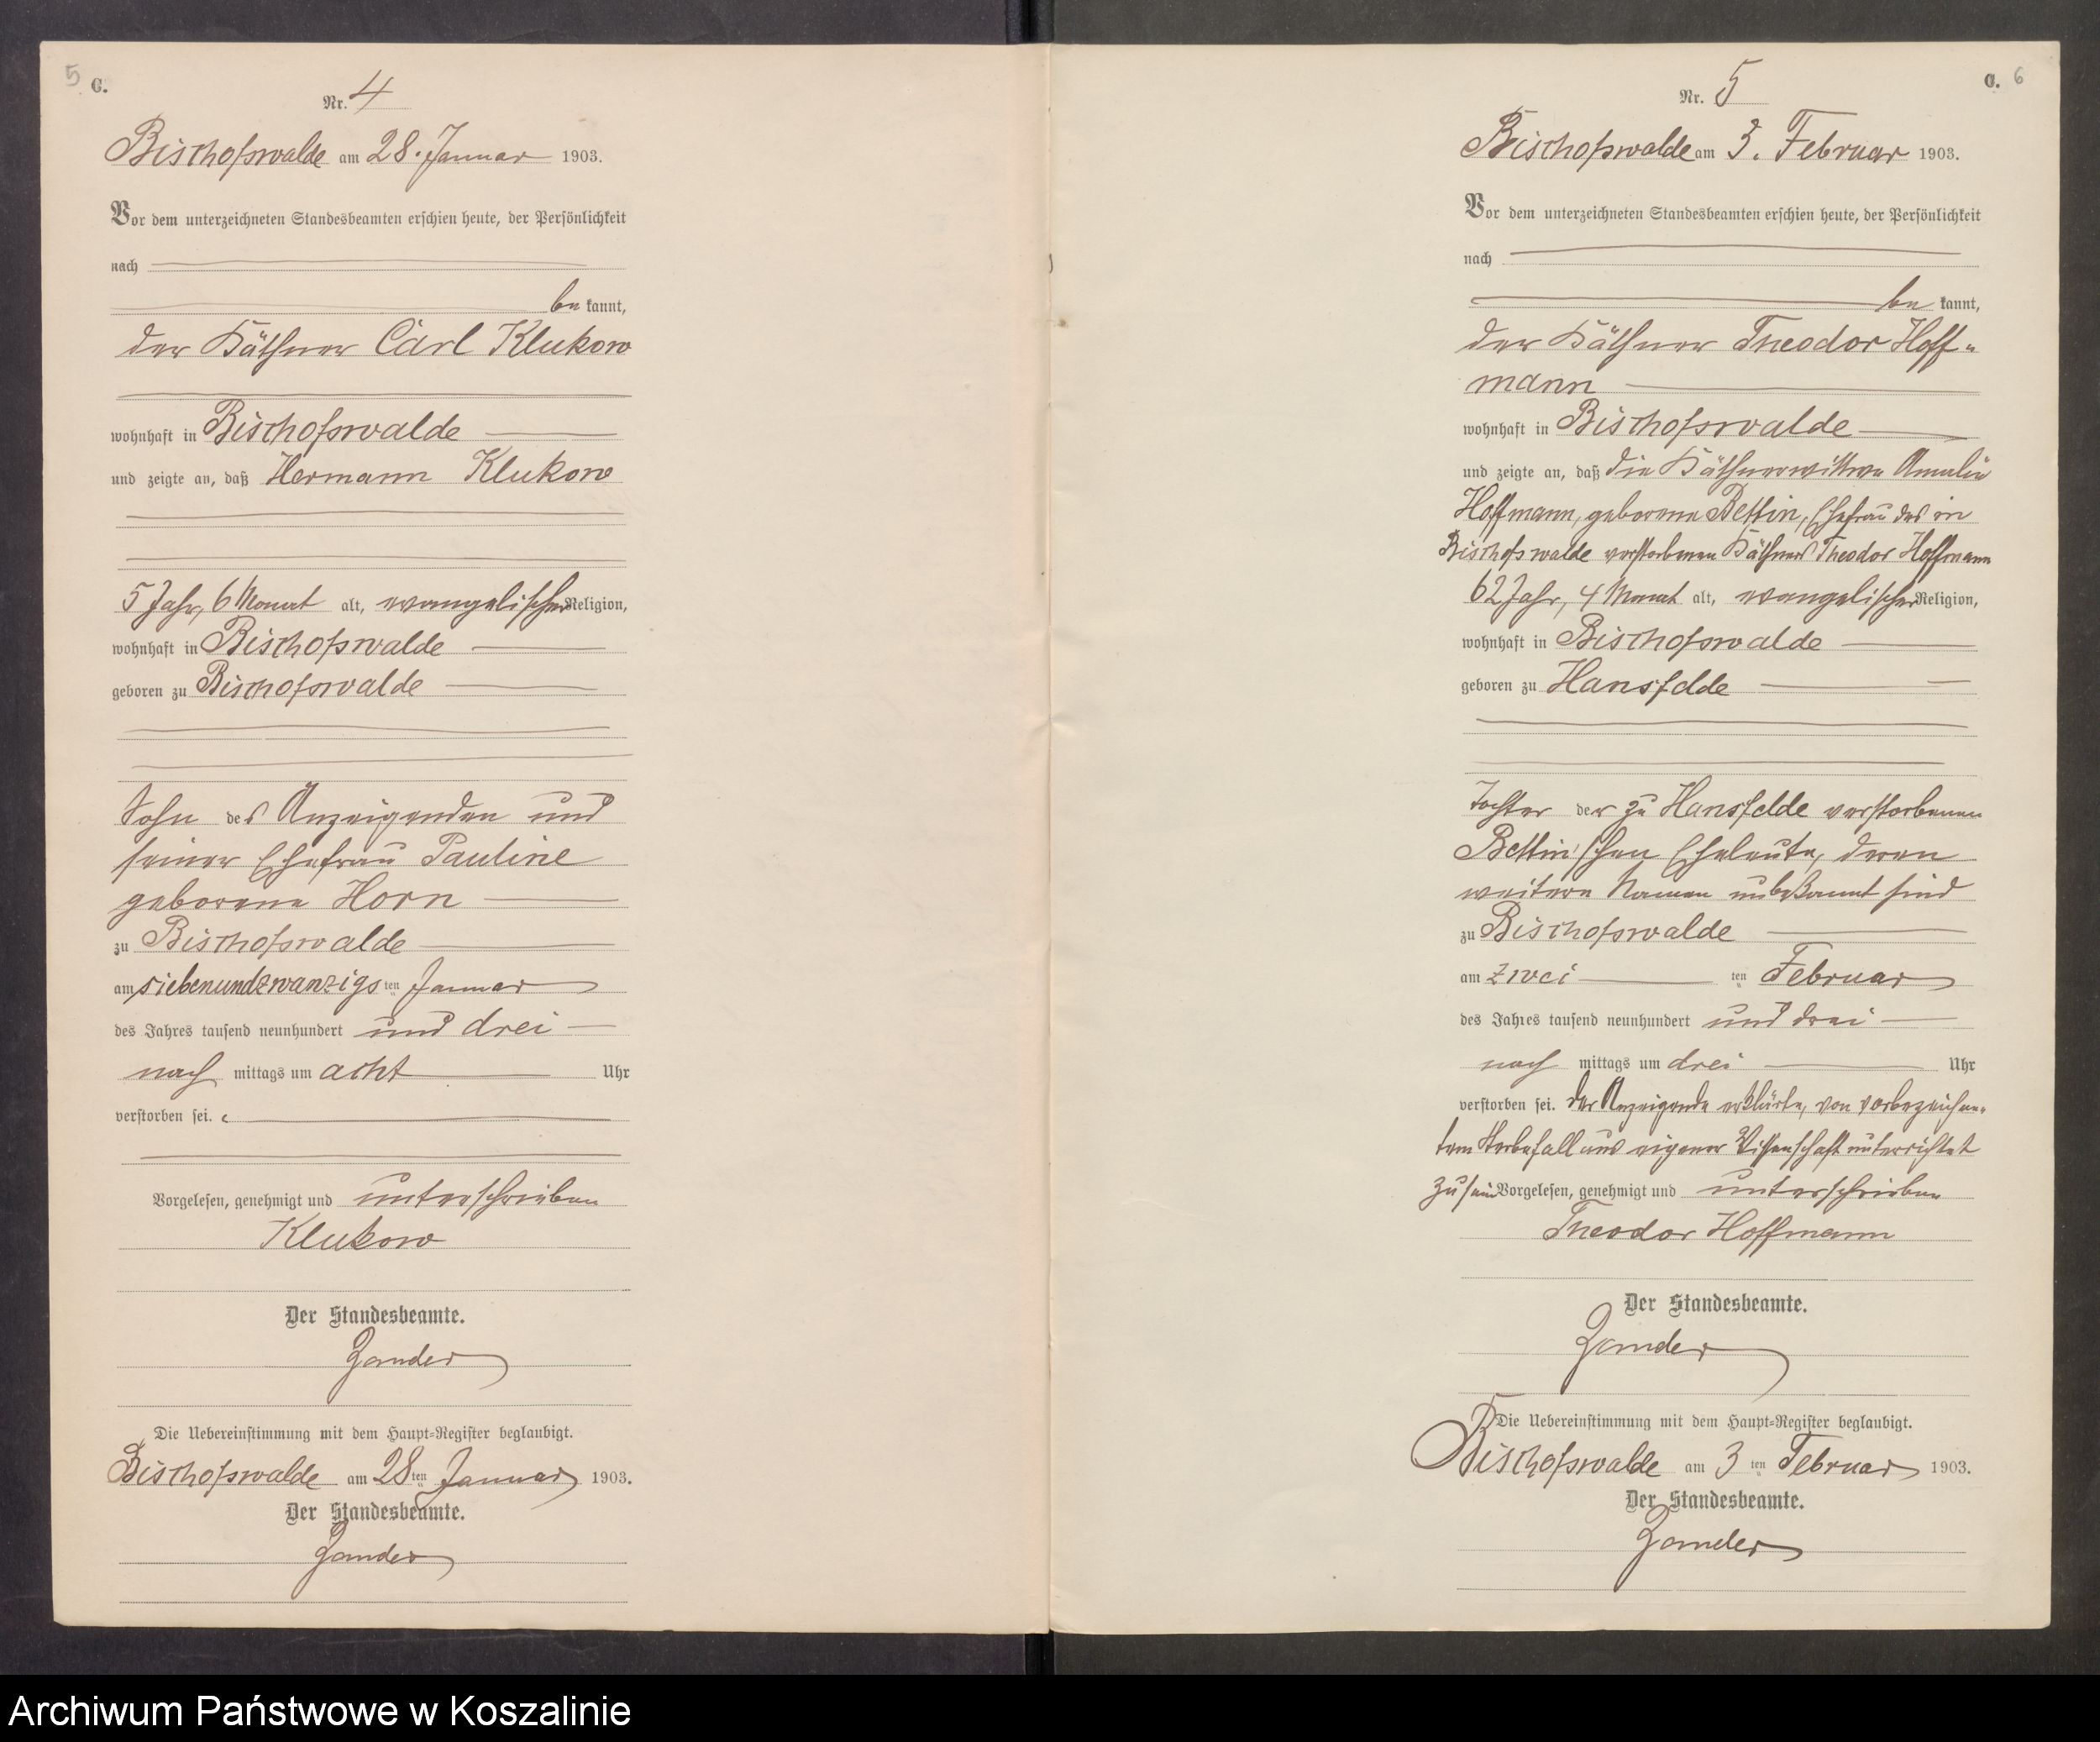 5 C.
Nr. 4
Bischofswalde am 28. Januar 1903.
Vor dem unterzeichneten Standesbeamten erschien heute, der Persönlichkeit
nach
be kannt,
der Käthner Carl Klukow
wohnhaft in Bischofswalde
und zeigte an, daß Hermann Klukow
5 Jahr, 6 Monat alt, evangelischer Religion,
wohnhaft in Bischofswalde
geboren zu Bischofswalde
Sohn des Anzeigenden und
seiner Ehefrau Pauline
geborene Horn
zu Bischofswalde
am siebenundzwanzigs ten Januar
des Jahres tausend neunhundert und drei
nach mittags um acht Uhr
verstorben sei.
Vorgelesen, genehmigt und unterschrieben
Klukow
Der Standesbeamte.
Zander
Die Uebereinstimmung mit dem Haupt-Register beglaubigt.
Bischofswalde am 28 ten Januar 1903.
Der Standesbeamte.
Zander
C. 6
Nr. 5
Bischofswalde am 3. Februar 1903.
Vor dem unterzeichneten Standesbeamten erschien heute, der Persönlichkeit
nach
be kannt,
der Käthner Theodor Hoff-
mann
wohnhaft in Bischofswalde
und zeigte an, daß die Käthnerwittwe Amalie
Hoffmann, geborene Bettin, Ehefrau des in
Bischofswalde verstorbenen Käthners Theodor Hoffmann
62 Jahr, 4 Monat alt, evangelischer Religion,
wohnhaft in Bischofswalde
geboren zu Hansfelde
Tochter der zu Hansfelde verstorbenen
Bettin'schen Eheleute, deren
weitere Namen unbekannt sind
zu Bischofswalde
am zwei ten Februar
des Jahres tausend neunhundert und drei
nach mittags um drei Uhr
verstorben sei. Der Anzeigende erklärte, von vorbezeichne-
tem Sterbefall aus eigener Wissenschaft unterrichtet
zu sein Vorgelesen, genehmigt und unterschrieben
Theodor Hoffmann
Der Standesbeamte.
Zander
Die Uebereinstimmung mit dem Haupt-Register beglaubigt.
Bischofswalde am 3 ten Februar 1903.
Der Standesbeamte.
Zander
Archiwum Państwowe w Koszalinie